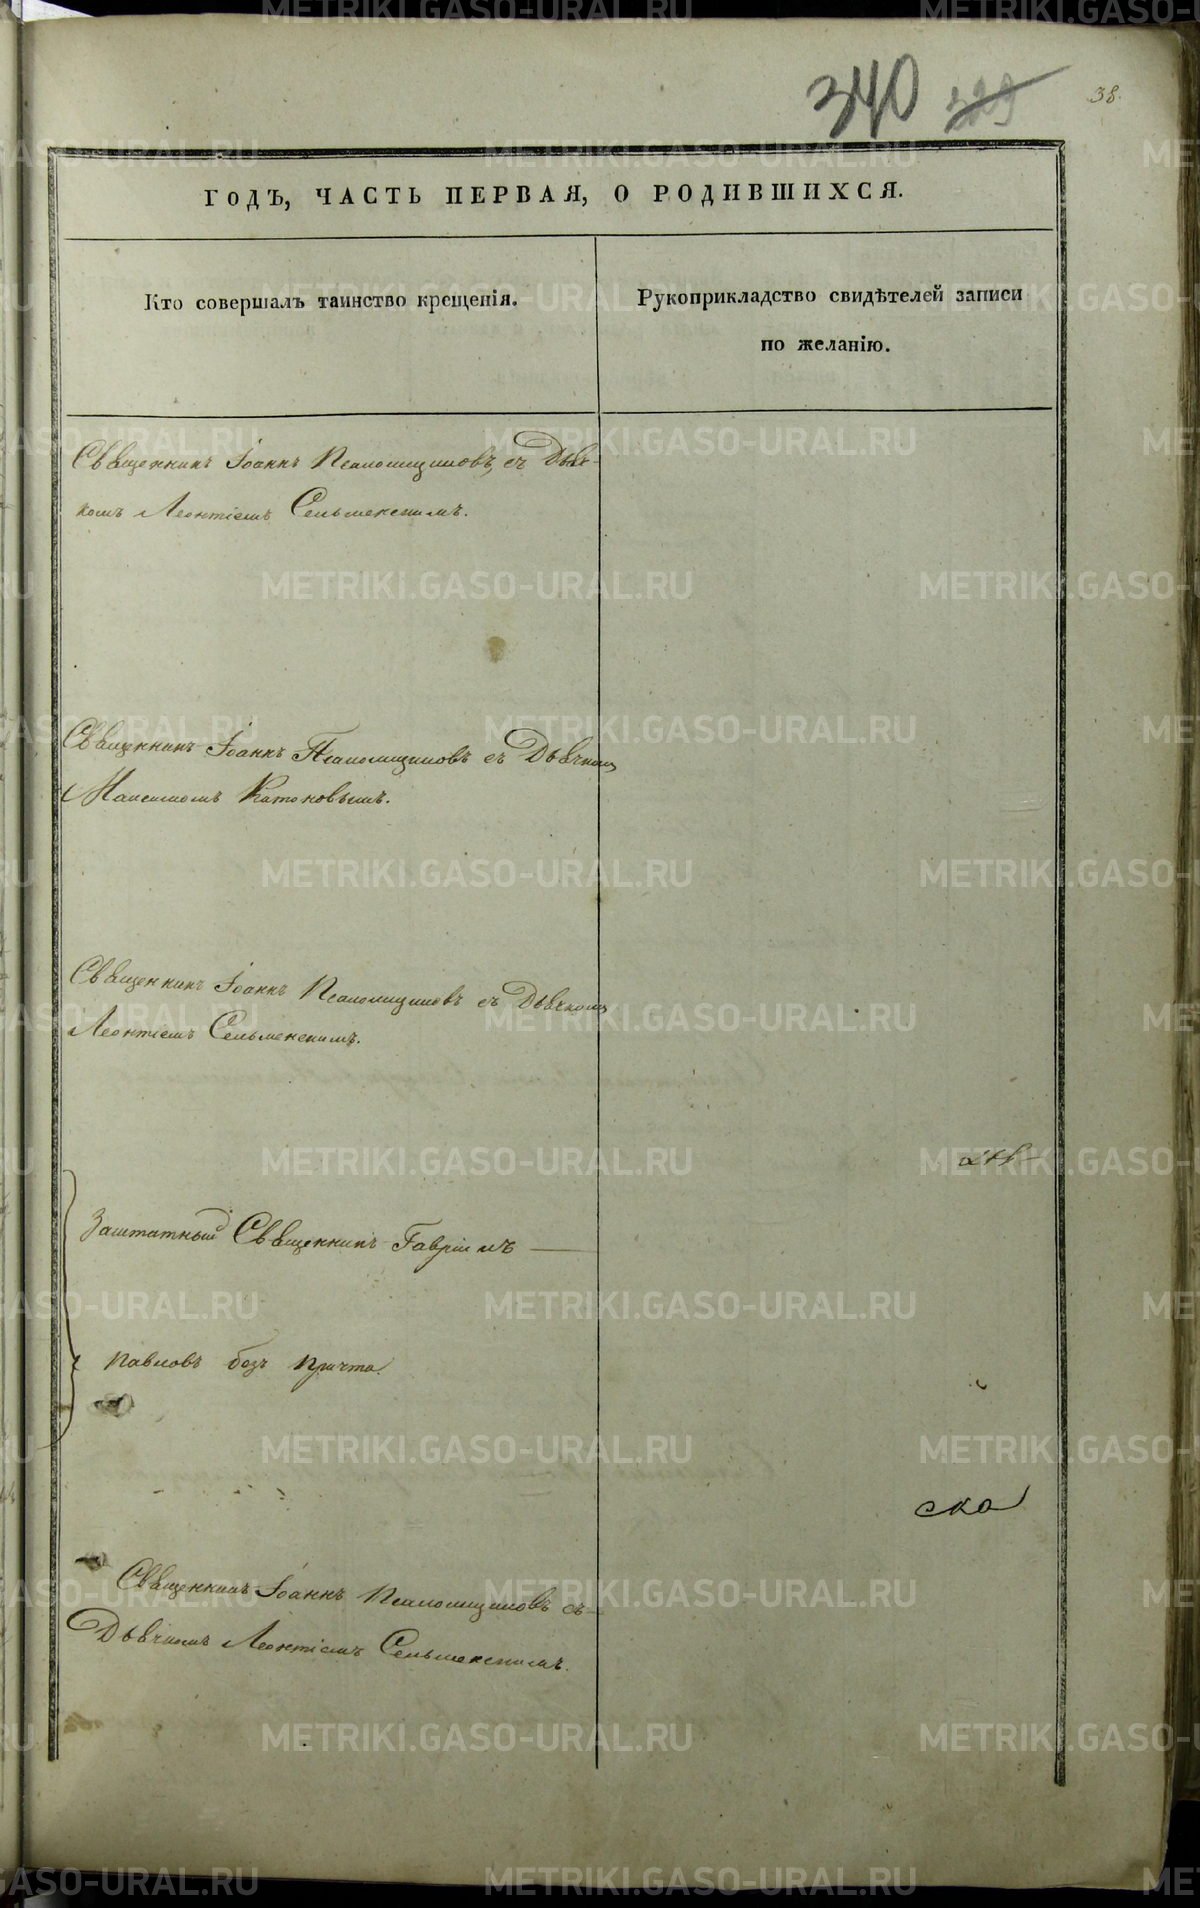 340 329 38.
ГОДЪ, ЧАСТЬ ПЕРВАЯ, О РОДИВШИХСЯ.
Кто совершалъ таинство крещенія.
Рукоприкладство свидѣтелей записи
по желанію.
Священникъ Іоаннъ Псаломщиковъ, съ Дьяч-
комъ Леонтіемъ Сельменскимъ.
Священникъ Іоаннъ Псаломщиковъ съ Дьячкомъ
Максимомъ Катоновымъ.
Священникъ Іоаннъ Псаломщиковъ съ Дьячкомъ
Леонтіемъ Сельменскимъ.
Заштатный Священникъ Гавріилъ —
Павловъ безъ причта.
ска
Священникъ Іоаннъ Псаломщиковъ съ
Дьячкомъ Леонтіемъ Сельменскимъ.
METRIKI.GASO-URAL.RU